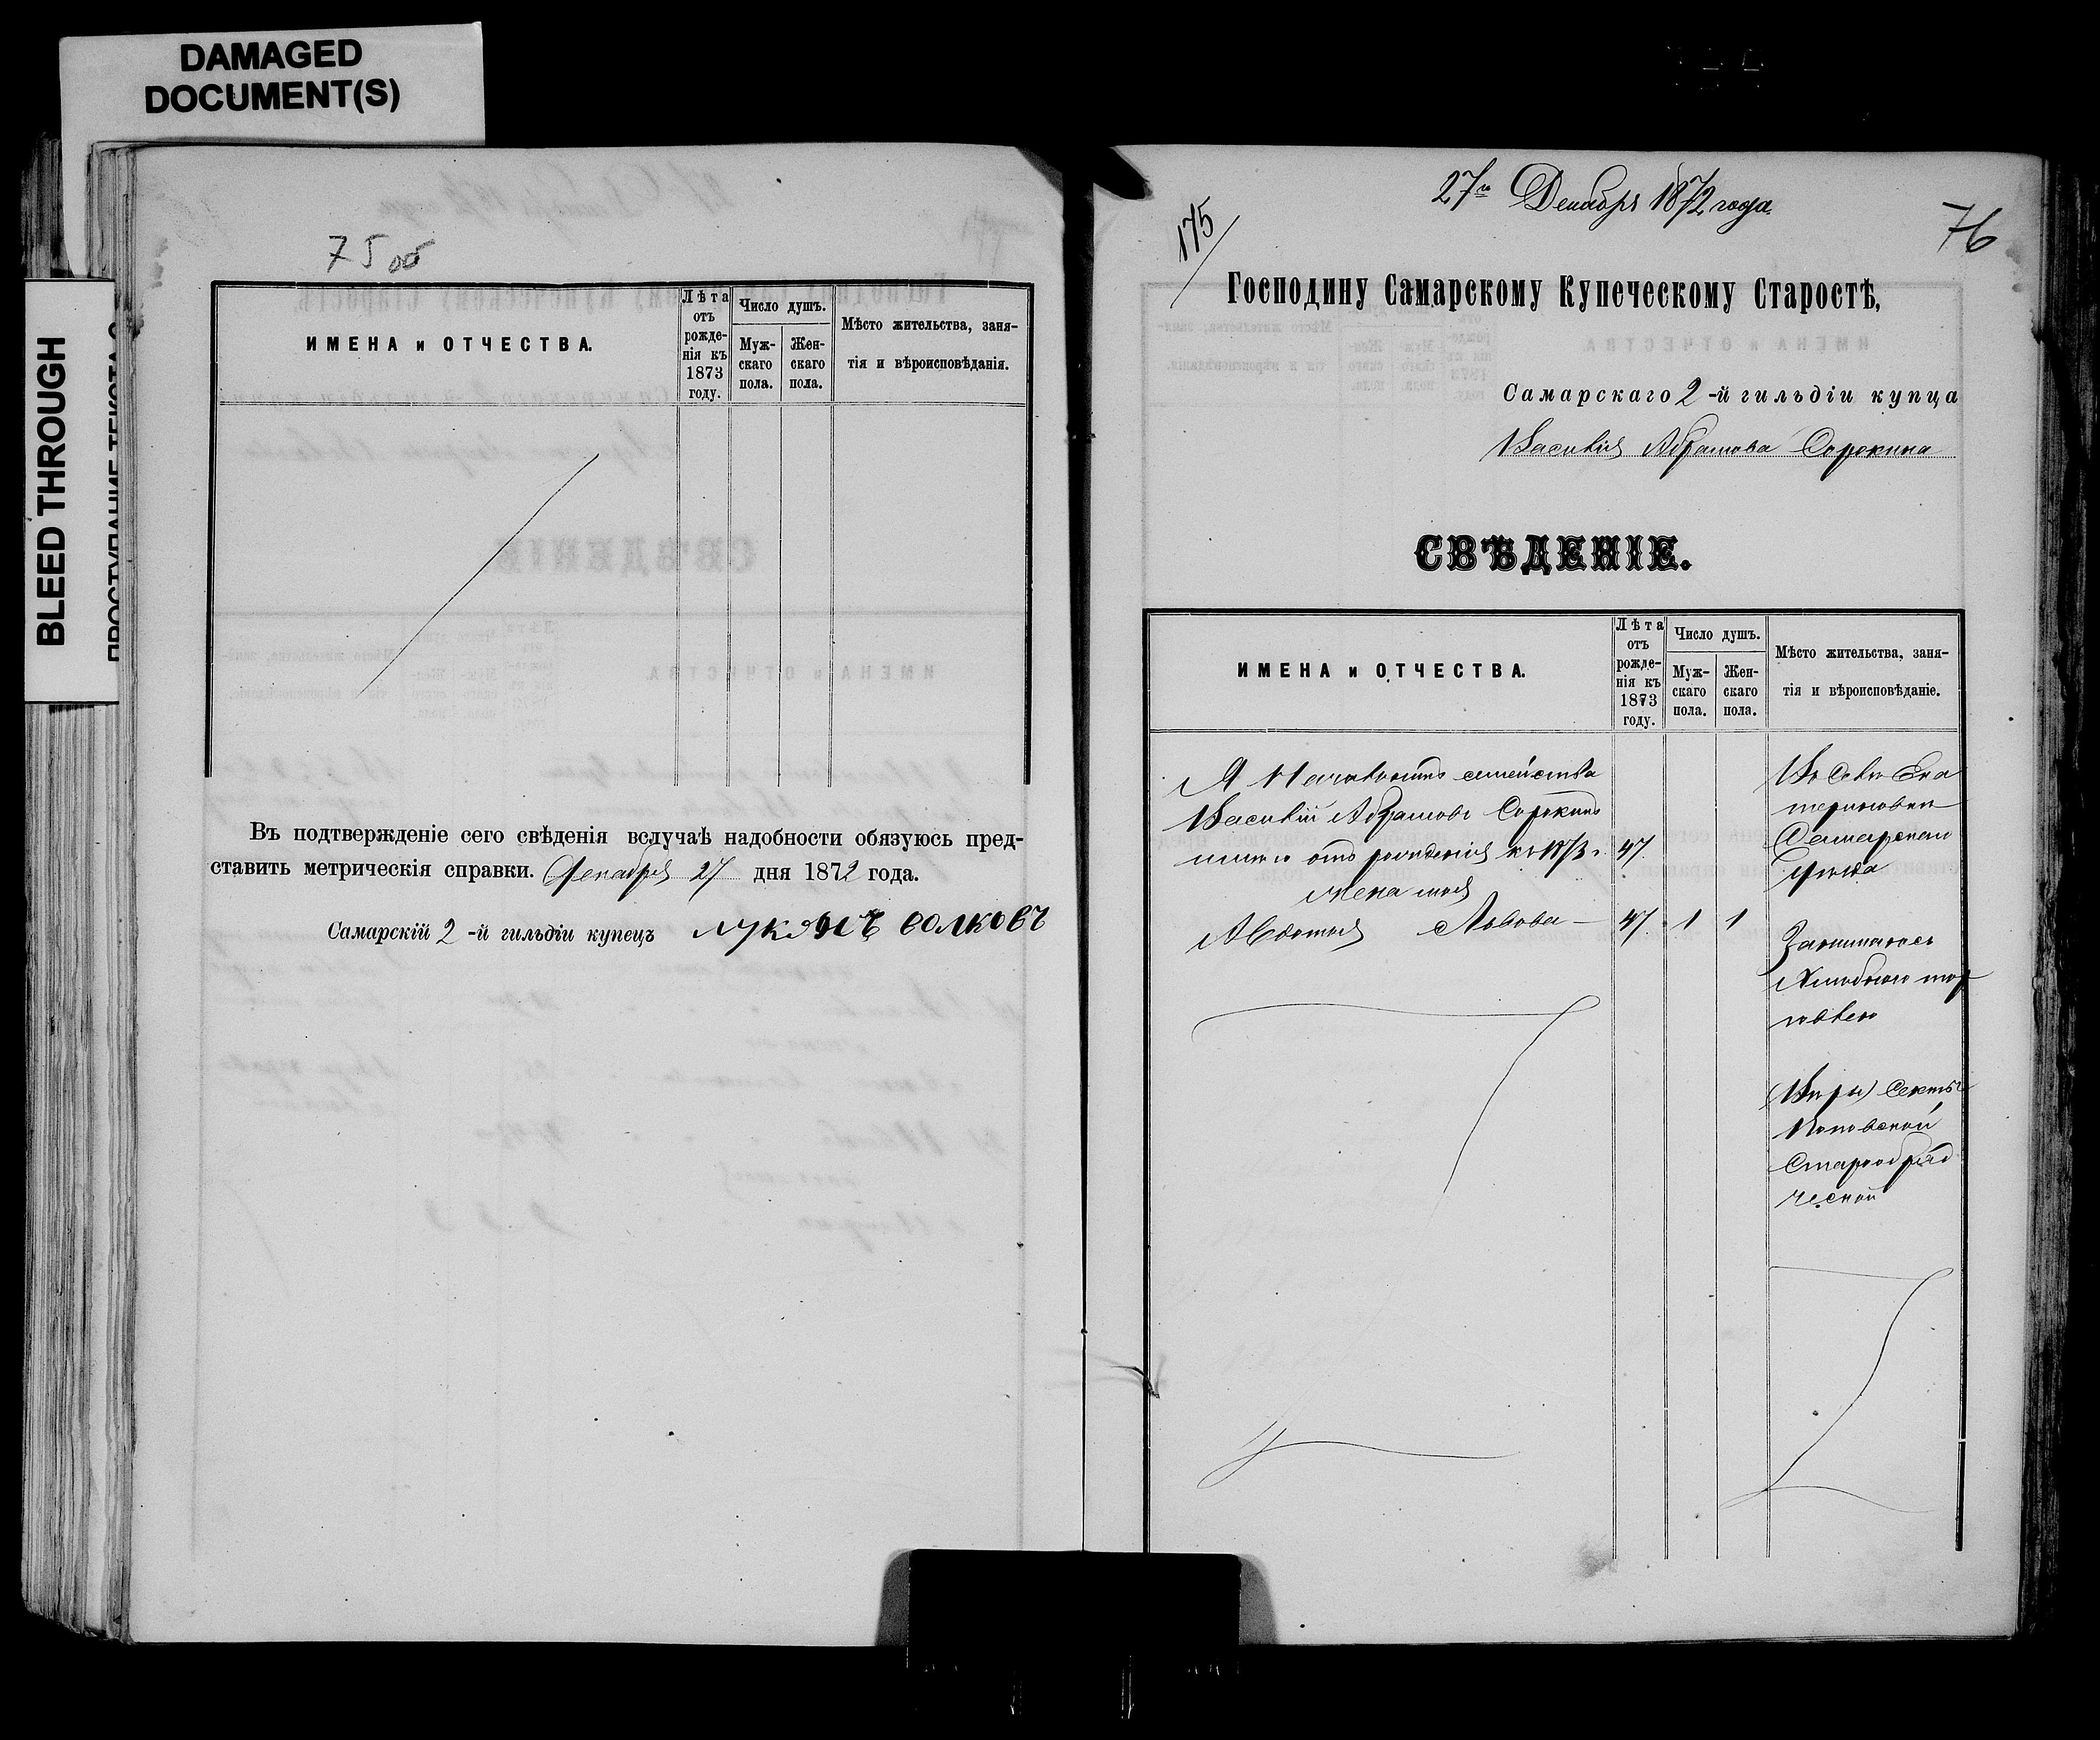 DAMAGED
DOCUMENT(S)
BLEED THROUGH
75 об
ИМЕНА и ОТЧЕСТВА.
Лѣта
отъ
рожде-
нія къ
1873
году.
Число душъ.
Муж-
скаго
пола.
Жен-
скаго
пола.
Мѣсто жительства, заня-
тія и вѣроисповѣданія.
Въ подтвержденіе сего свѣденія вслучаѣ надобности обязуюсь пред-
ставить метрическія справки. Декабря 27 дня 1872 года.
Самарскій 2-й гильдіи купецъ лукянъ волковъ
175
27го Декабря 1872 года.
76
Господину Самарскому Купеческому Старостѣ,
Самарскаго 2-й гильдіи купца
Василія Абрамова Сорокина
СВѢДЕНІЕ.
ИМЕНА и ОТЧЕСТВА.
Лѣта
отъ
рожде-
нія къ
1873
году.
Число душъ.
Муж-
скаго
пола.
Жен-
скаго
пола.
Мѣсто жительства, заня-
тія и вѣроисповѣданіе.
Я Начальникъ семейства
Василій Абрамовъ Сорокинъ
отъ рожденія къ 1873 г. 47.
Жена моя
Авдотья Львова 47. 1 1
Въ Селѣ Ека
териновки
Самарскаго
Уѣзда
Занимаюсь
Хлебною тор
говлею
(Вѣры) Секты
Поповской
Старообряд
ческой